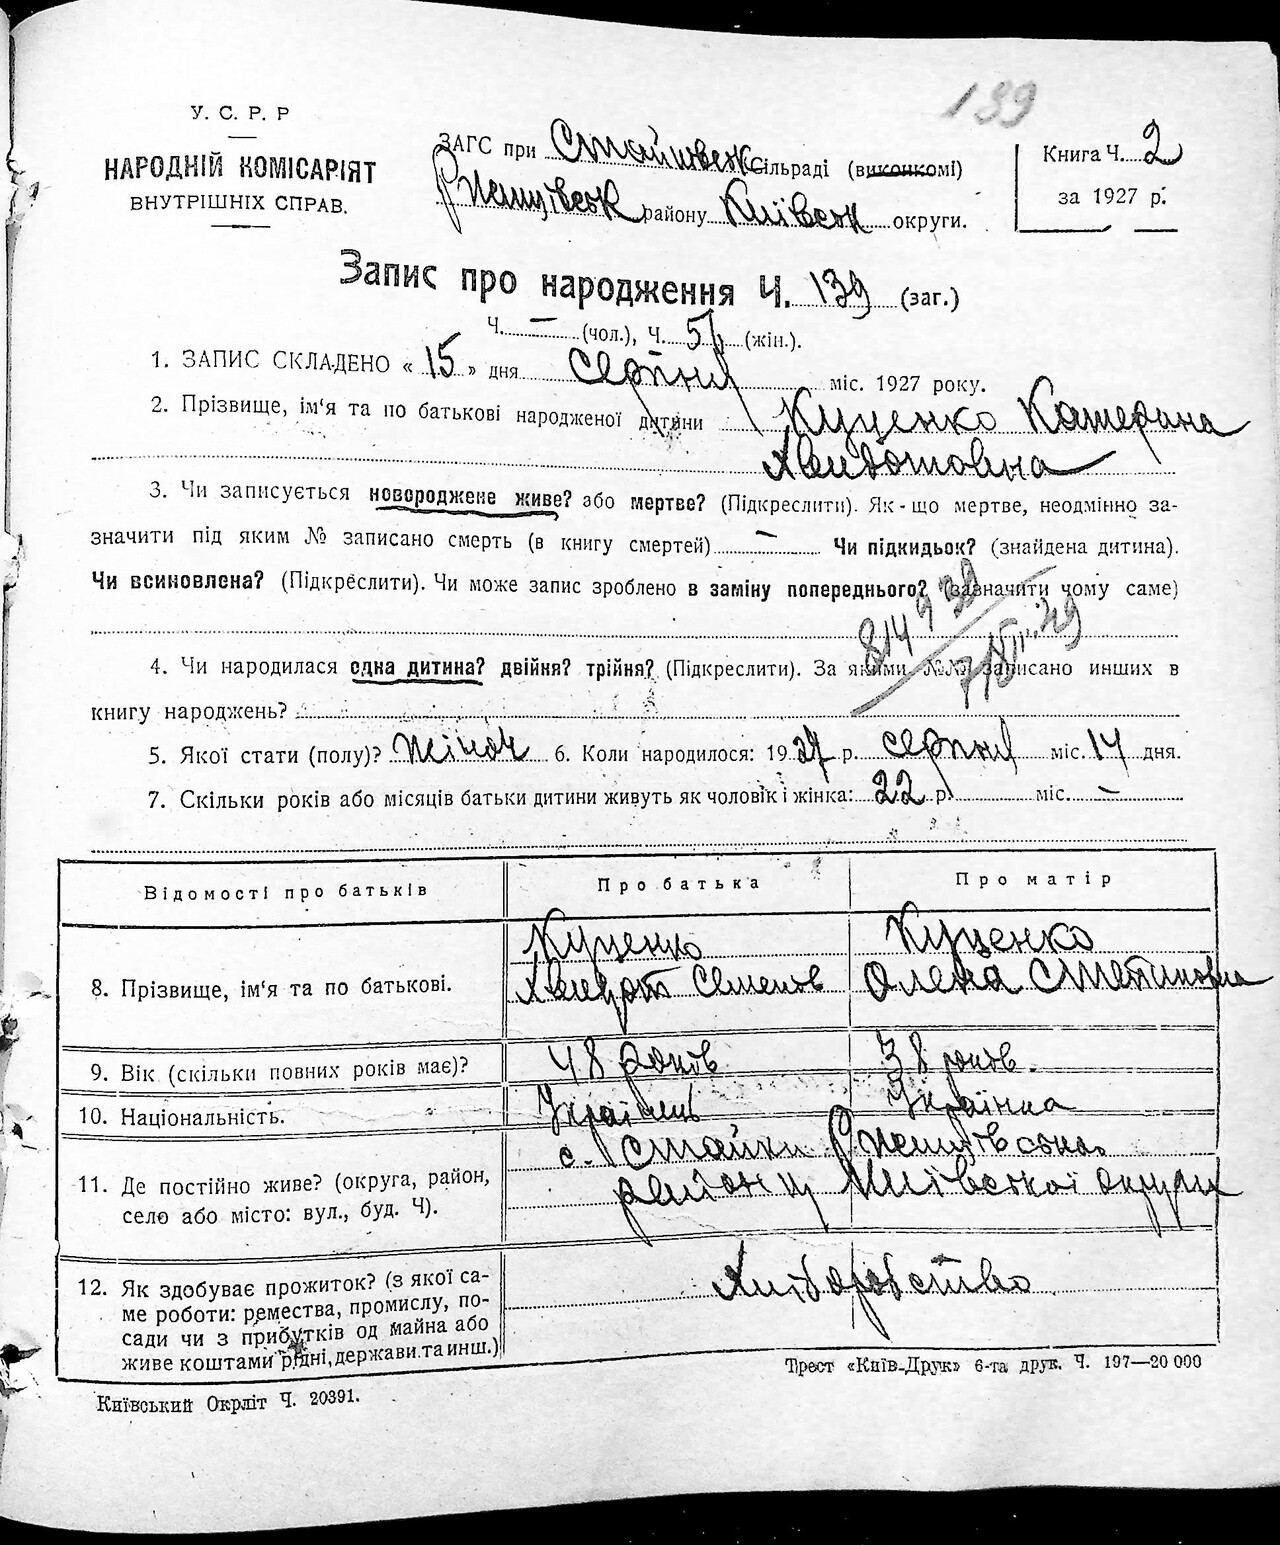 139
У. С. Р. Р
НАРОДНІЙ КОМІСАРІЯТ
ВНУТРІШНІХ СПРАВ.
ЗАГС при Стайковськ сільраді (виконкомі)
Ржищівськ району Київськ округи.
Книга Ч. 2
за 1927 р.
Запис про народження Ч. 139 (заг.)
Ч. — (чол.), Ч. (жін.).
1. ЗАПИС СКЛАДЕНО « 15 » дня серпня міс. 1927 року.
2. Прізвище, ім'я та по батькові народженої дитини Куценко Катерина
3. Чи записується новороджене живе? або мертве? (Підкреслити). Як-що мертве, неодмінно за-
значити під яким № записано смерть (в книгу смертей) — Чи підкидьок? (знайдена дитина).
Чи всиновлена? (Підкреслити). Чи може запис зроблено в заміну попереднього? (зазначити чому саме)
4. Чи народилася одна дитина? двійня? трійня? (Підкреслити). За якими №№ записано инших в
книгу народжень?
5. Якої стати (полу)? жіноч 6. Коли народилося: 1927 р. серпня міс. 14 дня.
7. Скільки років або місяців батьки дитини живуть як чоловік і жінка: 22 р. міс. —
Відомості про батьків
Про батька
Про матір
8. Прізвище, ім'я та по батькові.
Куценко
Семенов
Куценко
Олена
9. Вік (скільки повних років має)?
48 років
38 років
10. Національність.
Українець
Українка
11. Де постійно живе? (округа, район,
село або місто: вул., буд. Ч).
с. Стайки Ржищівськ.
району Київської округи
12. Як здобуває прожиток? (з якої са-
ме роботи: ремества, промислу, по-
сади чи з прибутків од майна або
живе коштами рідні, держави. та инш.)
Хліборобство
Київський Окрліт Ч. 20391.
Трест «Київ-Друк» 6-та друк. Ч. 197—20 000